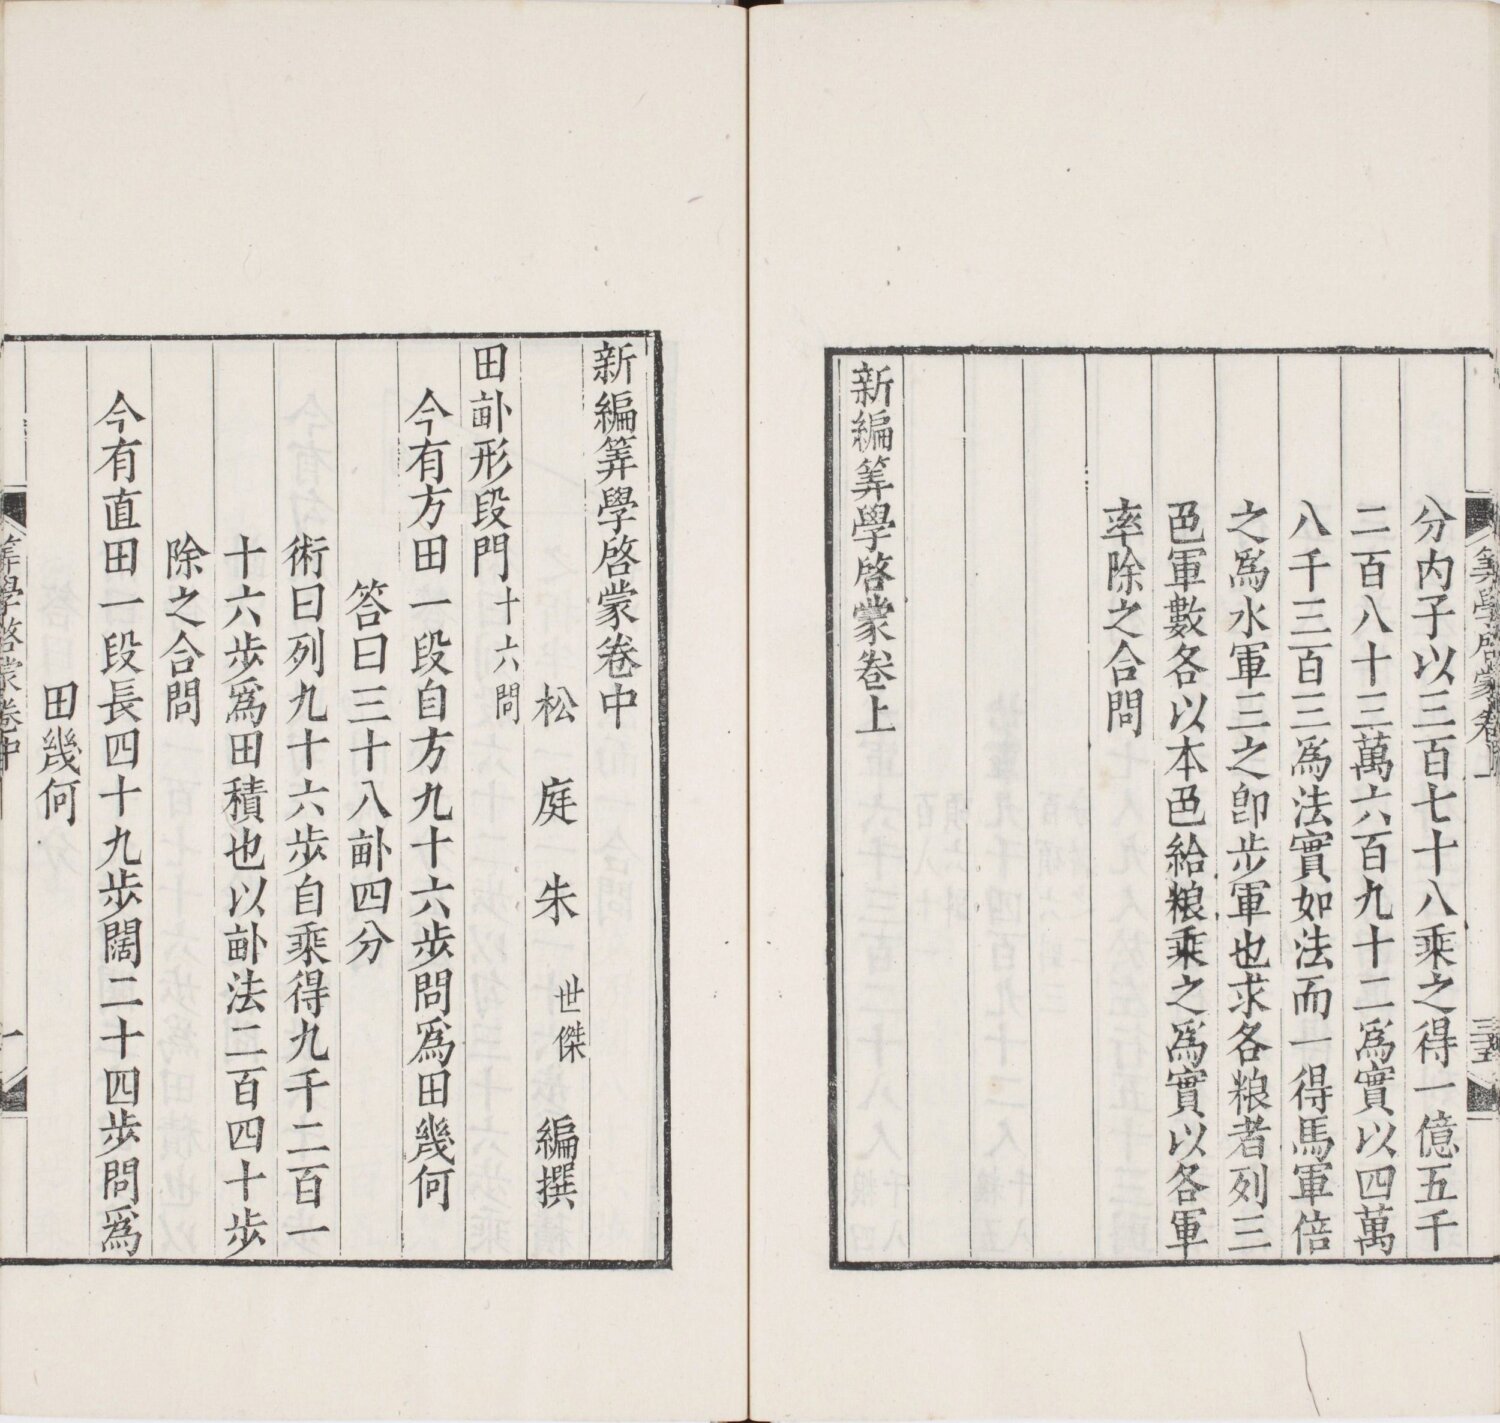 分内子以三百七十八乘之得一億五千
二百八十三萬六百九十二爲實以四萬
八千三百三爲法實如法而一得馬軍倍
之爲水軍三之卽步軍也求各粮者列三
色軍數各以本色給粮乘之爲實以各軍
率除之合問
新編筭學啓蒙卷上
新編筭學啓蒙卷中
松庭朱世傑編撰
田畝形段門十六問
今有方田一段自方九十六步問爲田幾何
答曰三十八畝四分
術曰列九十六步自乘得九千二百一
十六步爲田積也以畝法二百四十步
除之合問
今有直田一段長四十九步闊二十四步問爲
田幾何
筭學啓蒙卷中
一